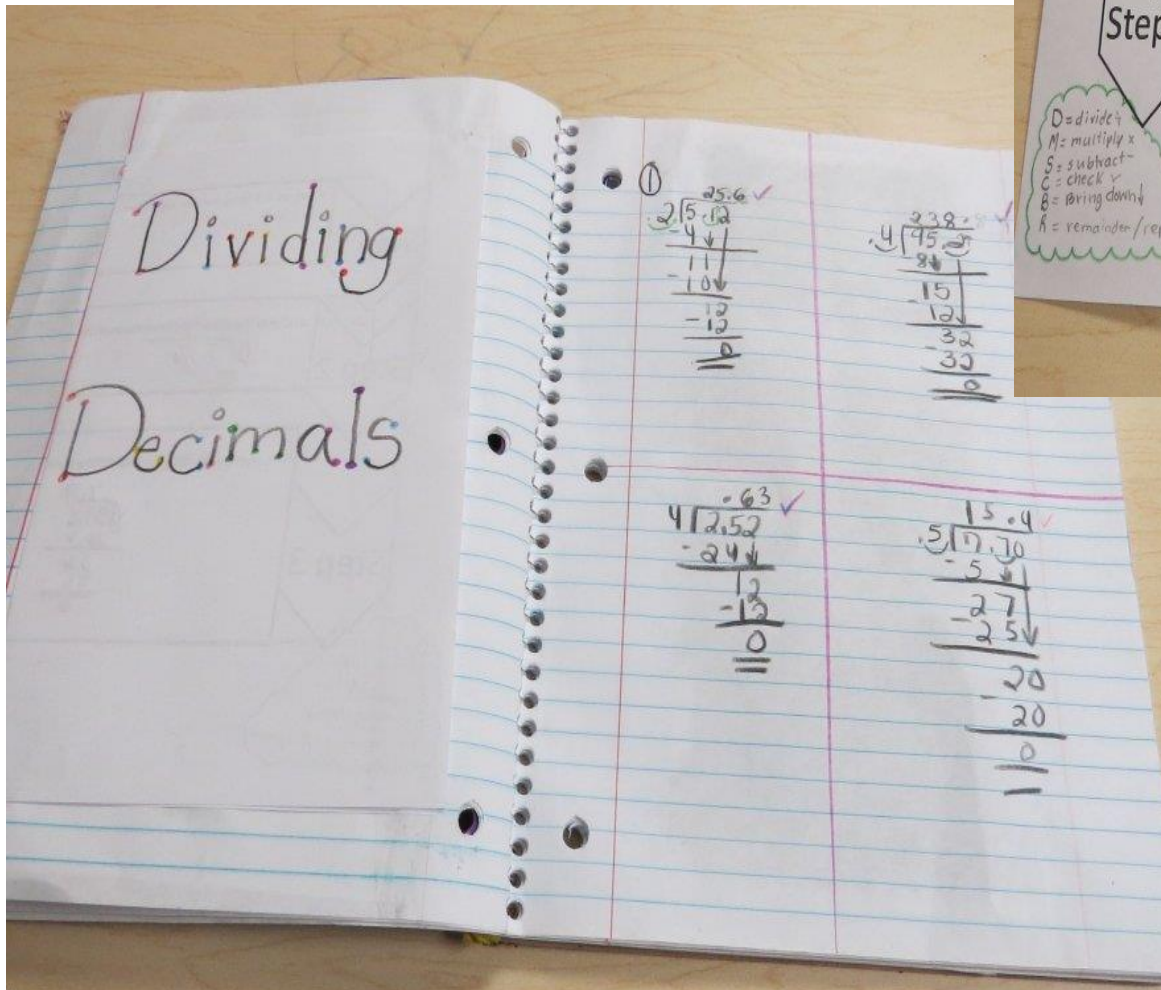 Dividing
Decimals
①
25.6 ✓
.2⟌5.12
-4
11
-10
12
-12
0
238.
.4⟌95.2
-8
15
-12
32
-32
0
.63 ✓
4⟌2.52
-24
12
-12
0
15.4 ✓
.5⟌7.70
-5
27
-25
20
-20
0
Step
D=divide÷
M=multiply x
S=subtract-
C=check ✓
B=Bring down↓
R=remainder/